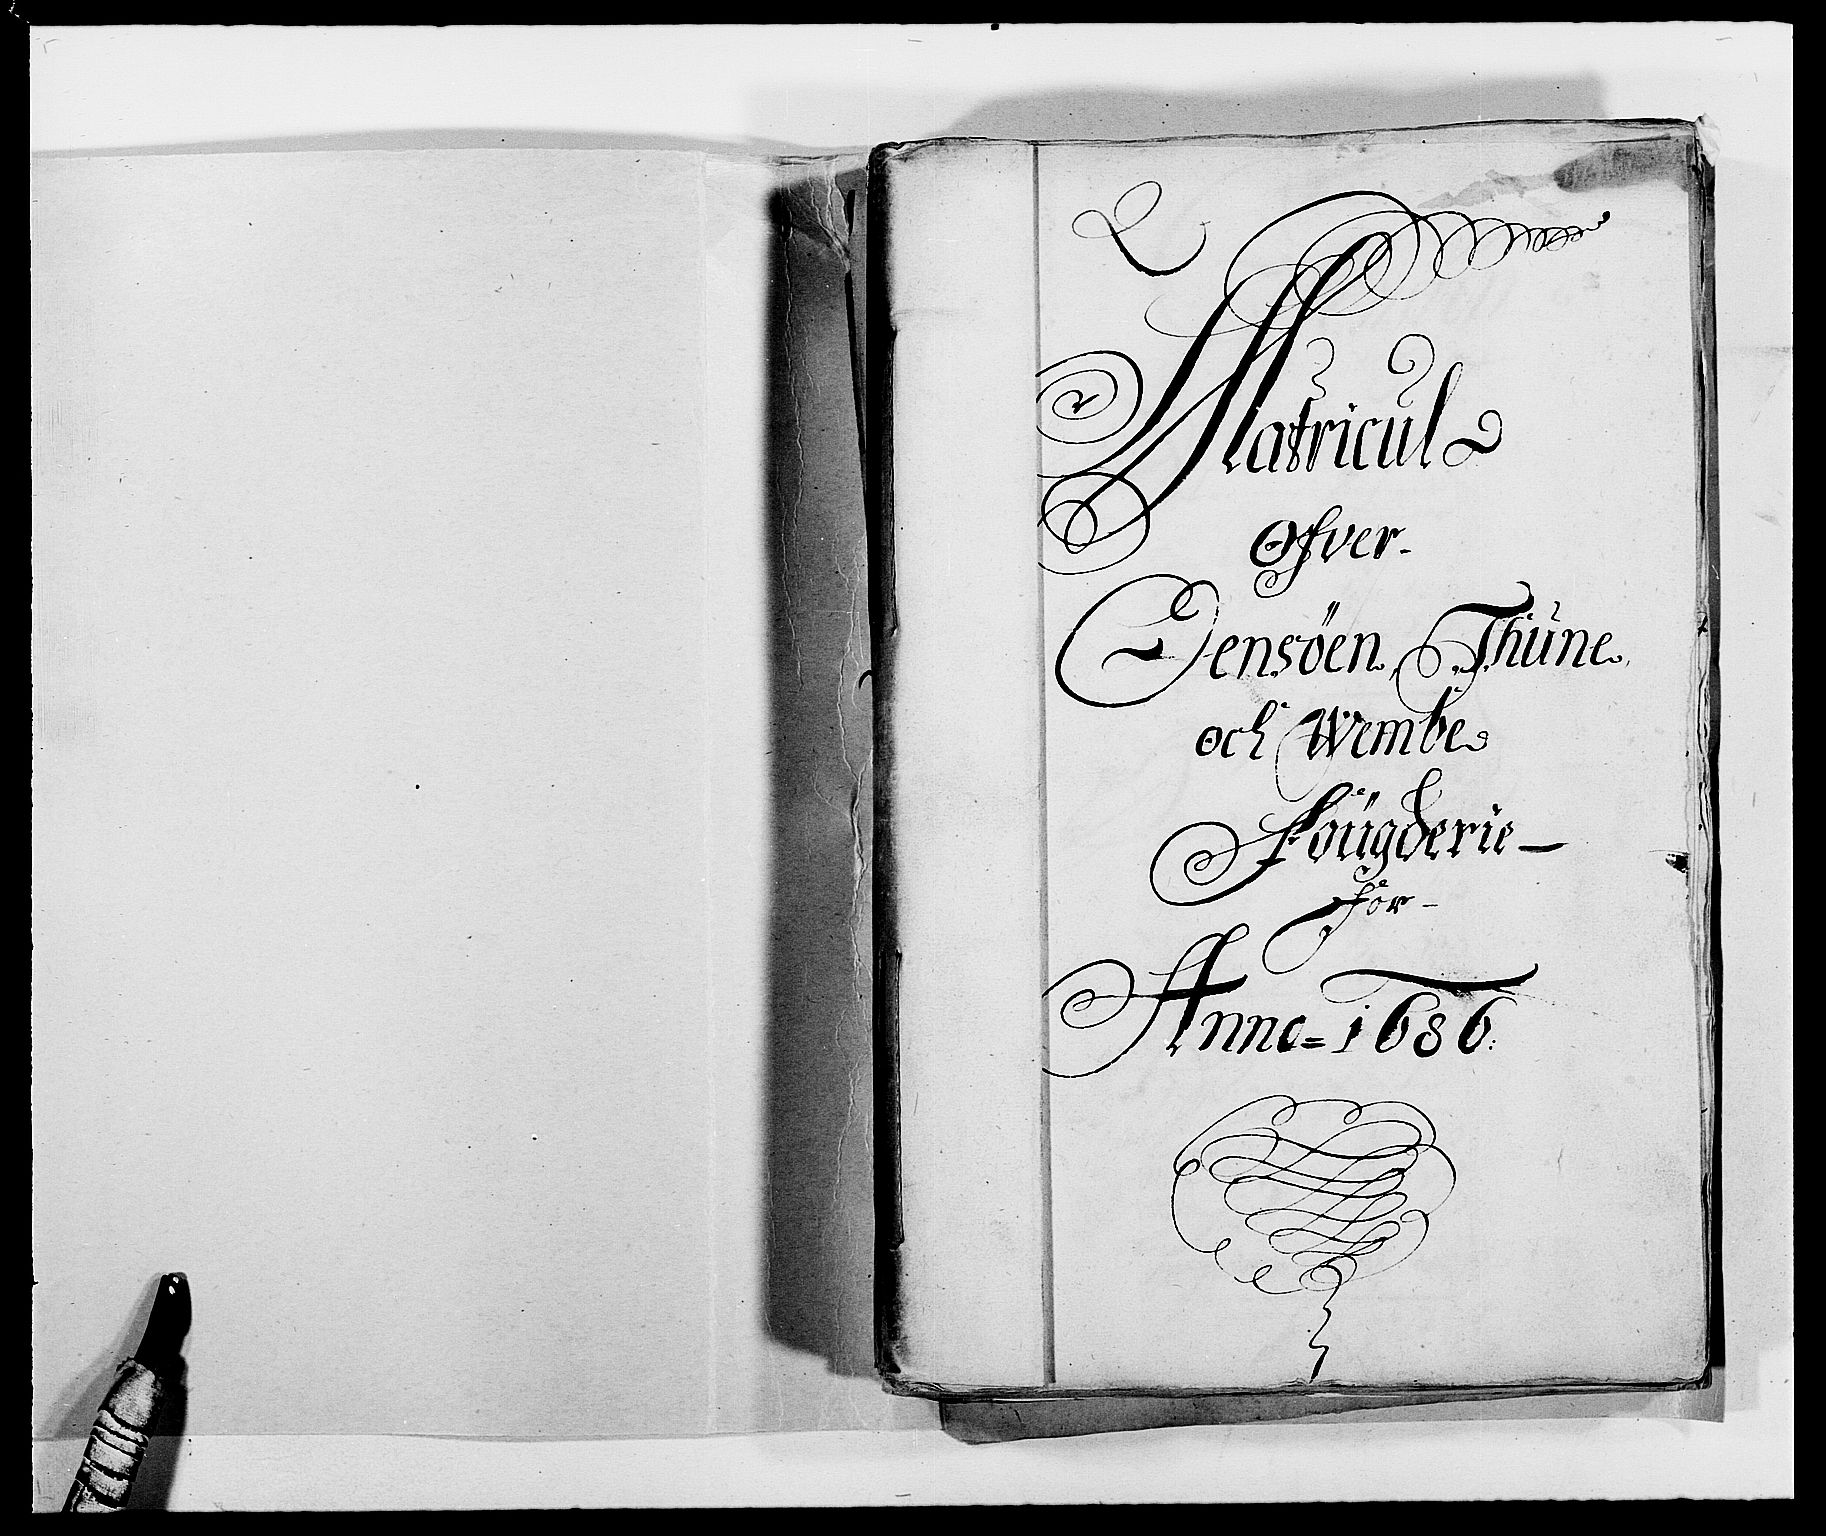 Matricul
Øfver
Jensöen, Thüne
och Wembe
Foügderie
för
Anno 1686.